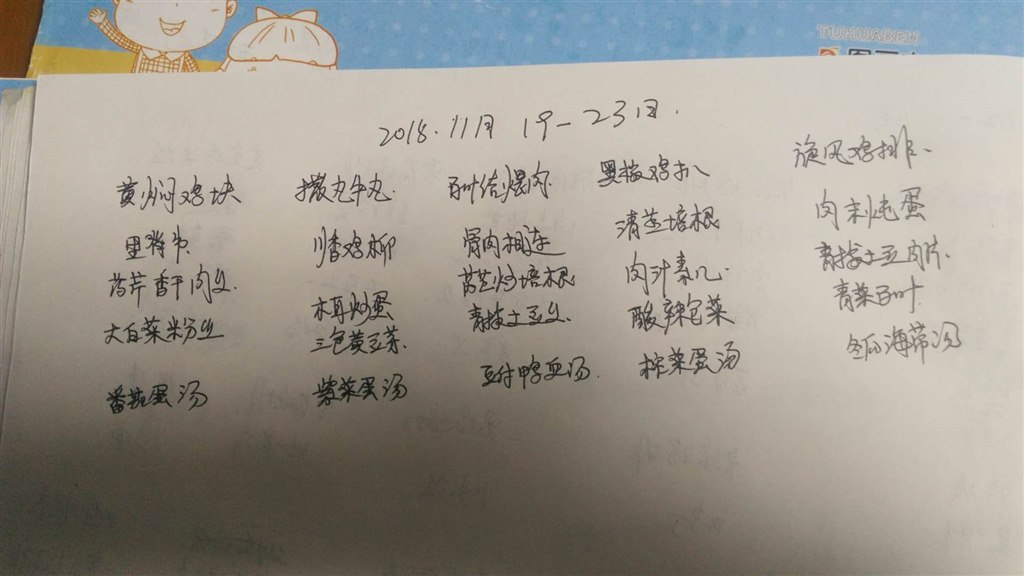 TUHUABEN
2018.11月 19-23日.
黄焖鸡块 撒尿牛丸. 百叶结煨肉 黑椒鸡扒 旋风鸡排.
里脊片 川香鸡柳 骨肉相连 清芝培根 肉末炖蛋
药芹香干肉丝. 木耳炒蛋 莴苣炒培根 肉汁素几. 青椒土豆肉片.
大白菜粉丝 三色黄豆芽. 青椒土豆丝. 酸辣包菜 青菜百叶
番茄蛋汤 紫菜蛋汤 豆付鸭血汤. 榨菜蛋汤 冬瓜海带汤